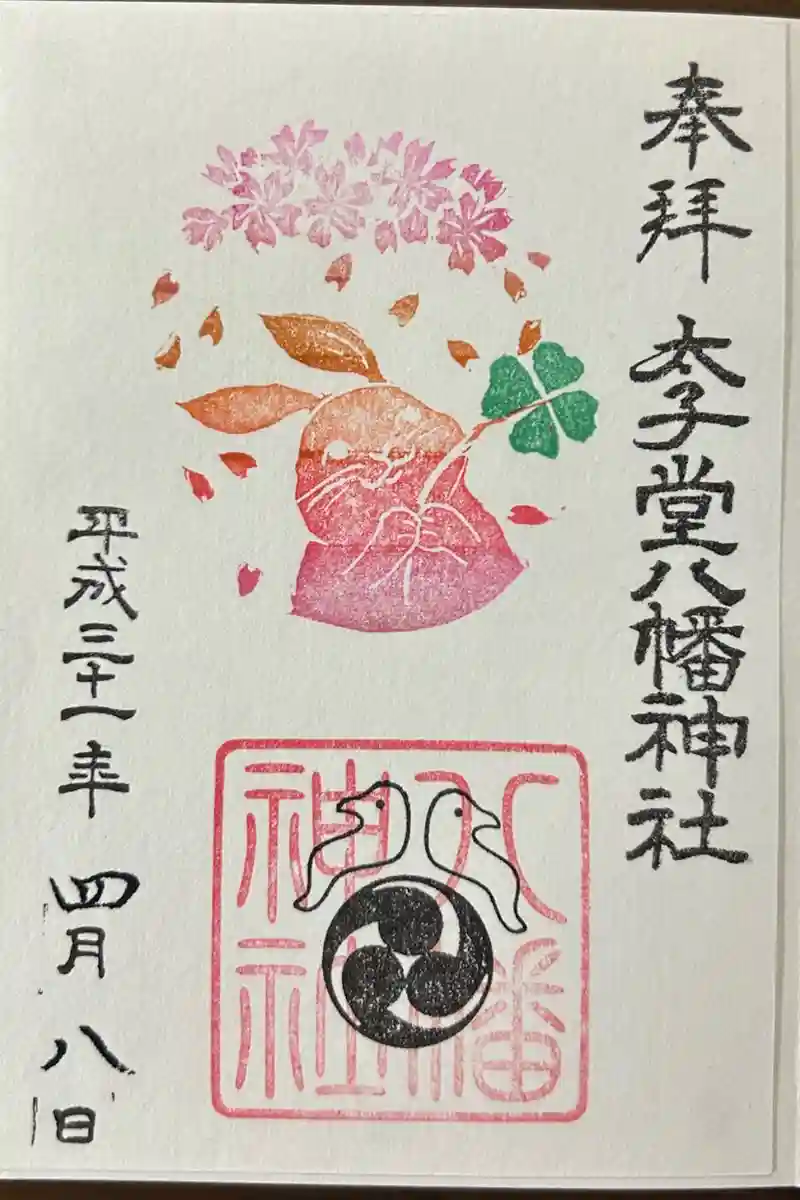 奉拝 太子堂八幡神社
八幡
神社
平成三十一年 四月 八日